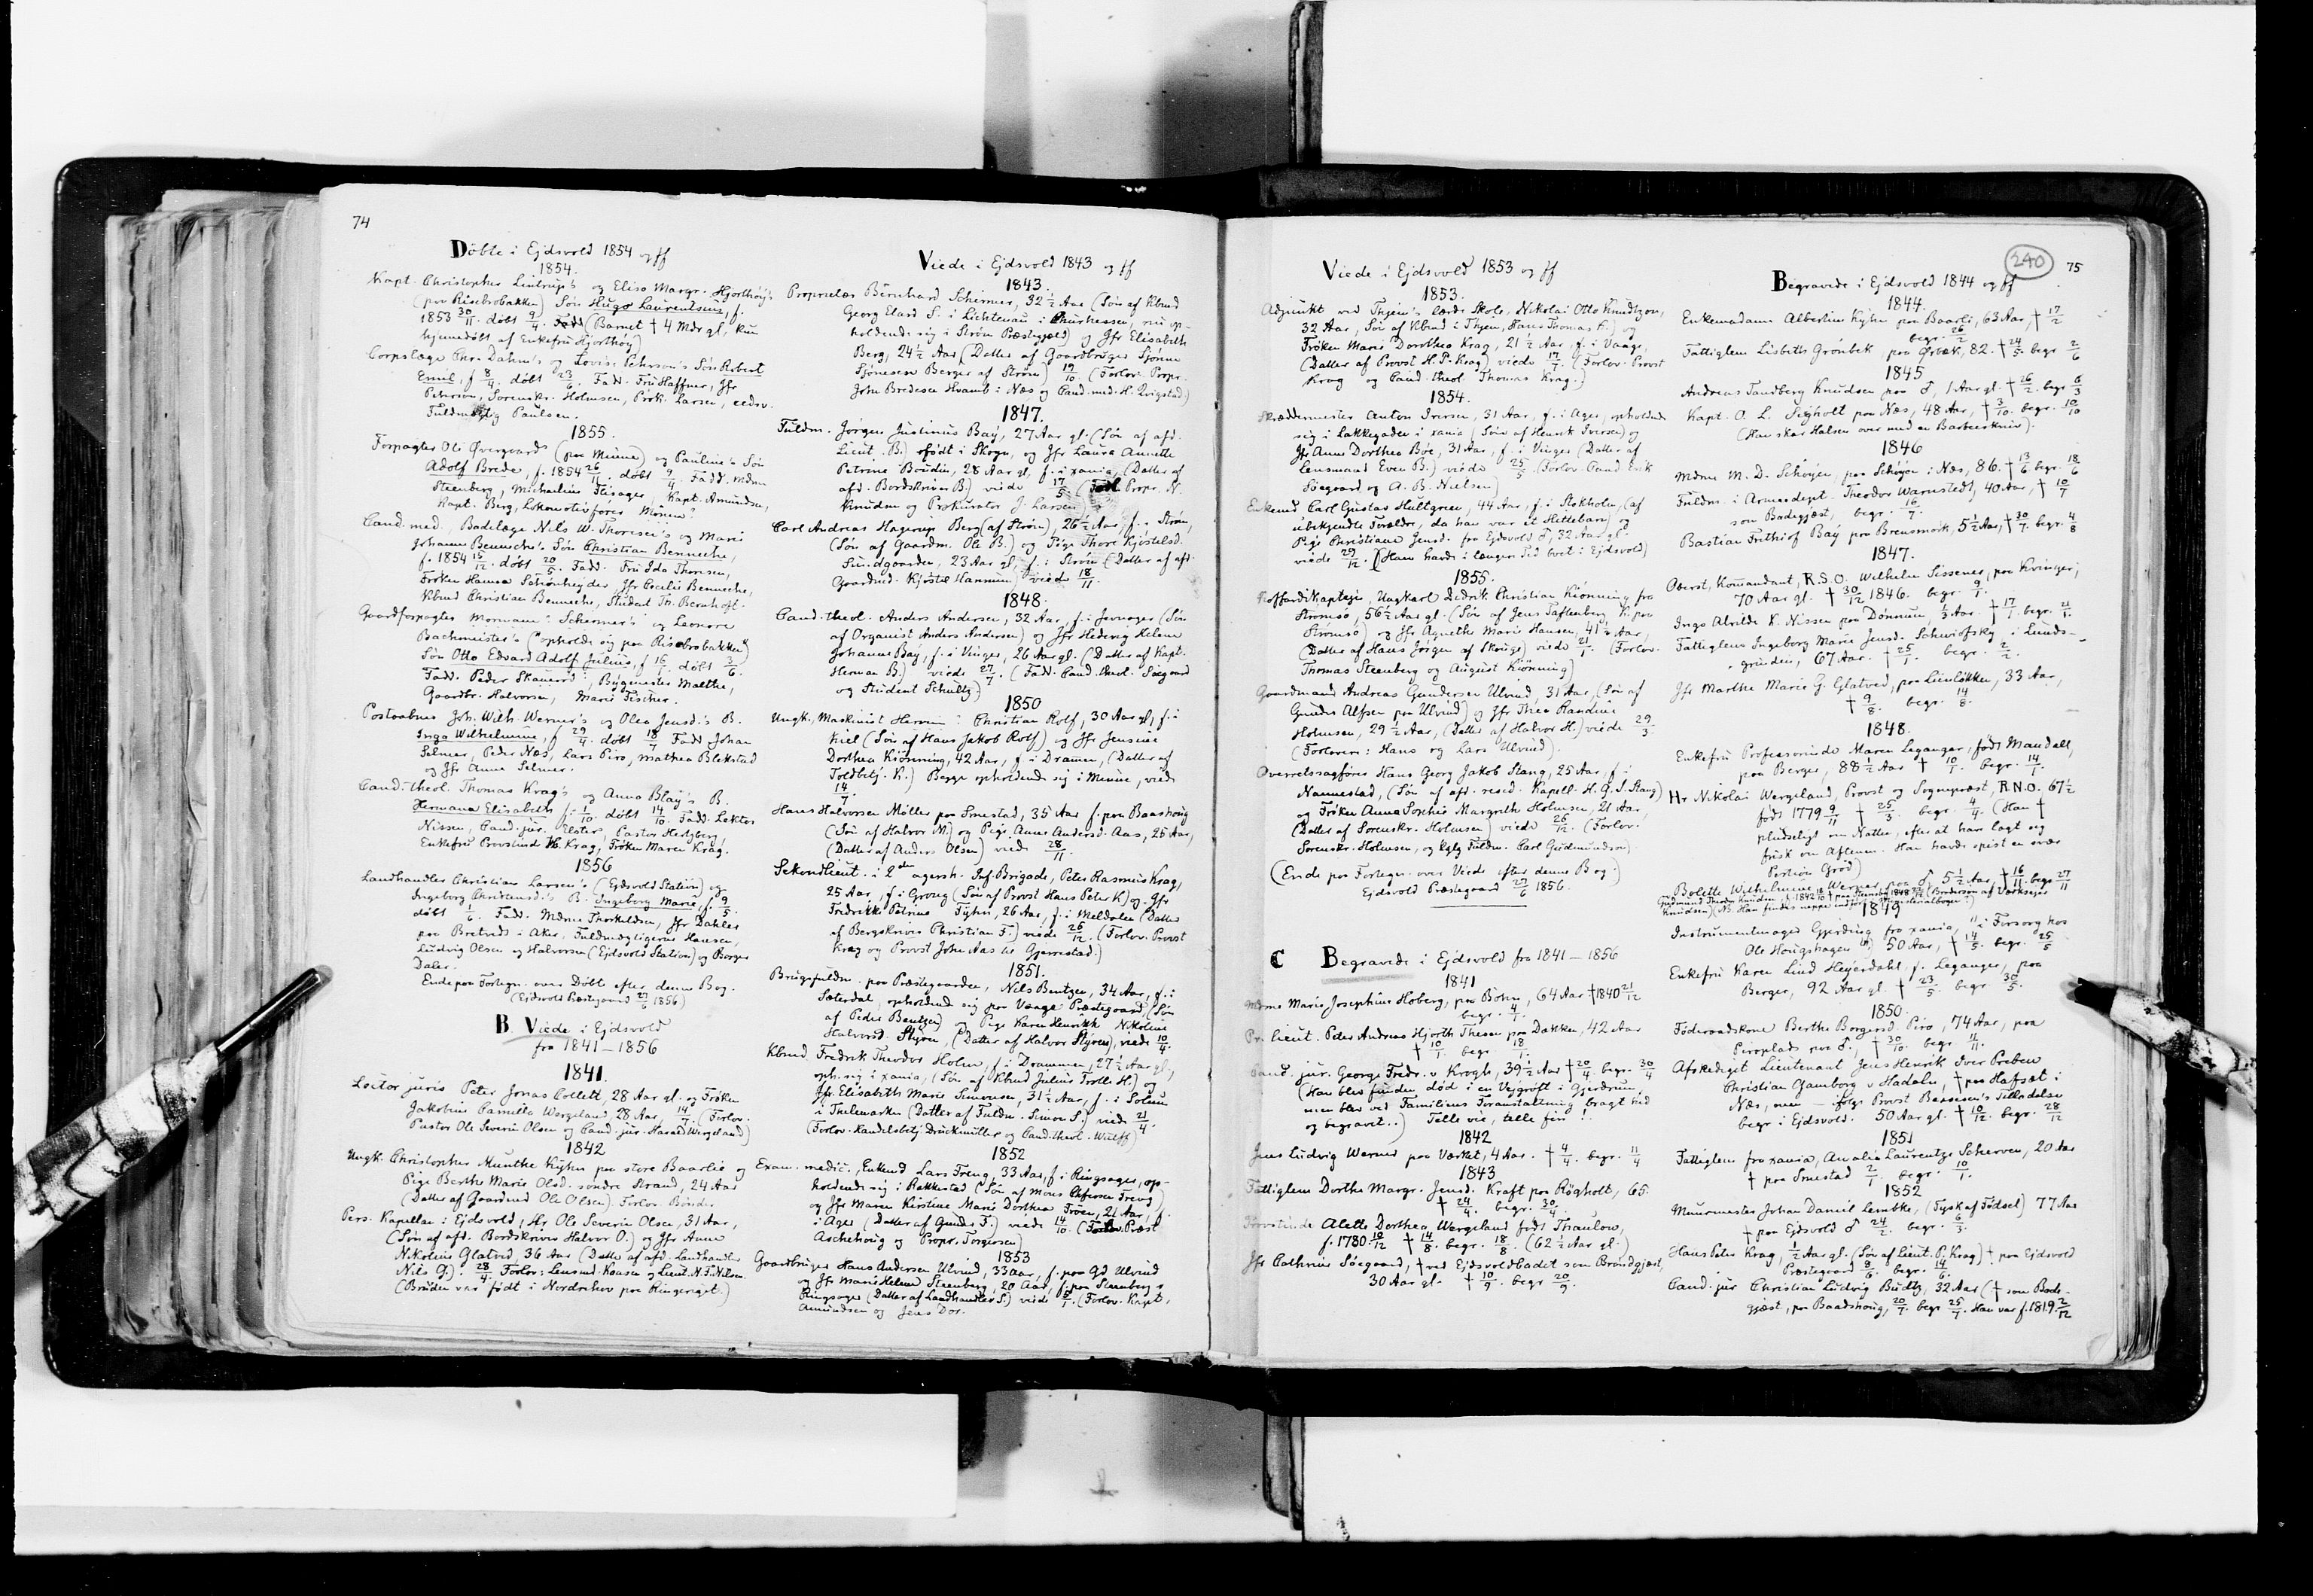 74
Døbte i Ejdsvold 1854 og ff
1854.
Kapt. Christopher Lintrup's og Elise Margr. Hjorthøy's
(paa Risebrobakken) Søn Hugo Laurentius, f.
1853 30/11. døbt 9/4. Fadd (Barnet † 4 Mdr gl, kun
hjemmedøbt af Enkefru Hjorthøy)
Corpslæge Chr. Dahm's og Lovise Peterson's Søn Robert
Emil, f 8/4. døbt 23/6. Fadd. Fru Haffner, Jfr
Peterson, Sorenskr. Holmsen, Prok. Larsen, eedsv.
Fuldmægtig Paulsen.
1855.
Forpagter Ole Øvergaard's (paa Minne) og Pauline's Søn
Adolf Brede, f. 1854 26/11. døbt 9/4. Fadd. Mdme
Steenberg, Michaeline Flisager, Kapt. Amundsen,
Kapt. Berg, Lokomotivfører
Cand. med., Badelæge Nils W. Thoresen's og Marie
Johanne Benneche's Søn Christian Benneche,
f. 1854 15/12. døbt 20/5. Fadd. Fru Ida Thoresen,
Frøken Hanna Schønheyder, Jfr Cecilie Benneche,
Kbmd Christian Benneche, Student Th. Bernhoft.
Gaardforpagter Mormann Schermer's og Leonore
Bachmeister's ("opholde sig paa Risebrobakken")
Søn Otto Edvard Adolf Julius, f 16/1. døbt 3/6.
Fadd. Peder Skaaerud, Bygmester Malthe,
Gaardbr. Halvorsen, Marie Fischer.
Postaabner Joh. Wilh. Werner's og Olea Jensd.'s B.
Inga Wilhelmine, f 29/4. døbt 18/7 Fadd Johan
Selmer, Peder Næs, Lars Piro, Mathea Blekstad
og Jfr Anne Selmer.
Cand. theol. Thomas Krag's og Anna Blay's B.
Hermana Elisabeth f. 1/10. døbt 14/10. Fadd. Lektor
Nissen, Cand. jur. Elster, Pastor Hertzberg,
Enkefru Provstinde Krag, Frøken Maren Krag.
1856
Landhandler Christian Larsen's (Ejdsvold Station) og
Ingeborg Christensd.'s B. Ingeborg Marie, f. 9/5.
døbt 1/6. Fadd. Mdme Thorkildsen, Jfr Dahler
paa Bretvedt i Aker, Fuldmægtigerne Hansen,
Ludvig Olsen og Halvorsen (Ejdsvold Station) og Borger
Daler.
Ende paa Fortegn. over Døbte efter denne Bog.
(Ejdsvold Præstegaard 27/6 1856)
B Viede i Ejdsvold
fra 1841 – 1856
1841.
Lector juris Peter Jonas Collett, 28 Aar gl. og Frøken
Jakobine Camilla Wergeland, 28 Aar, 14/7. (Forlov.
Pastor Ole Severin Olsen og Cand. jur. Harald Wergeland)
1842
Ungk. Christopher Munthe Kyhn paa store Baarlie og
Pige Berthe Marie Olsd. søndre Strand, 24 Aar
(Datter af Gaardmd Ole Olsen). Forlov. Bønder.
Pers. Kapellan i Ejdsvold, Hr Ole Severin Olsen, 31 Aar,
(Søn af afd. Bordskriver Halvor O.) og Jfr Anne
Nikoline Glatved, 36 Aar (Datter af afd. Landhandler
Nils G). 28/4. Forlov: Lensmd. Hansen og Lieut. N. F. Nilsen
(Bruden var født i Nordrehov paa Ringeriget.)
Viede i Ejdsvold 1843 og ff
1843.
Proprietær Bernhard Schirmer, 32 1/2 Aar (Søn af Kbmd
Georg Elard S. i Lichtenau i Churhessen, nu op-
holdende sig i Strøm Præstegjæld) og Jfr Elisabeth
Berg, 24 1/2 Aar (Datter af Gaardbruger Sjønne
Sjønnesen Berger af Strøm) 19/10. (Forlov. Propr.
John Bredesen Hvamb i Næs og Cand. med. H. Qvigstad)
1847.
Fuldm. Jørgen Justinus Bay, 27 Aar gl. (Søn af afd.
Lieut. B.) født i Skogn, og Jfr Laura Annette
Petrine Boudin, 28 Aar gl, f. i xania, (Datter af
afd. Bordskriver B.) viede 17/5. (Propr. N.
Knudsen og Prokurator J. Larsen)
Carl Andreas Hagerup Berg (af Strøm), 26 1/2 Aar, f. i Strøm,
(Søn af Gaardm. Ole B.) og Pige Thore Kjøstelsd.
Sundgaarden, 23 Aar gl, f. i Strøm (Datter af afd.
Gaardmd. Kjøstel Hammer) viede 18/11.
1848.
Cand. theol. Anders Andersen, 32 Aar, f. i Jevnager (Søn
af Organist Anders Andersen) og Jfr Hedevig Helene
Johanne Bay, f. i Vinger, 26 Aar gl. (Datter af Kapt.
Herman B.) viede 27/7. (Fadd. Cand. theol. Søegaard
og Student Schultz)
1850
Ungk., Maskinist Herman Christian Rolf, 30 Aar gl, f. i
Kiel (Søn af Hans Jakob Rolf) og Jfr Jensine
Dorthea Kiønning, 42 Aar, f. i Dramen, (Datter af
Toldbetj. K.) Begge opholdende sig i Minne, viede
14/7.
Hans Halvorsen Møller paa Smestad, 35 Aar f. paa Baashoug
(Søn af Halvor M.) og Pige Anne Andersd. Aas, 25 Aar,
(Datter af Anders Olsen) viede 28/11.
Sekondlieut. i 2den agersh. Inf. Brigade, Peter Rasmus Krag,
25 Aar, f. i Grong (Søn af Provst Hans Peter K) og Jfr
Fredrikke Petrine Fyhn, 26 Aar, f. i Meldalen (Datter
af Bergskriver Christian F.) viede 26/12. (Forlov. Provst
Krag og Provst John Aas til Gjerrestad.)
1851.
Brugsfuldm. paa Præstegaarden, Nils Bentzen, 34 Aar, f. i
Sæterdal, opholdende sig paa Vaage Præstegaard (Søn
af Peder Bentzen) og Pige Karen Henrikke Nikoline
Halvorsd. Styren, (Datter af Halvor Styren), viede 10/4.
Kbmd. Fredrik Theodor Holm, f. i Drammen, 27 1/2 Aar gl,
oph. sig i xania, (Søn af Kbmd Julius Trolle H.) og
Jfr Elisabeth Marie Simonsen, 31 1/2 Aar, f. i Solum
i Thelemarken (Datter af Fuldm. Simon S.) viede 21/4.
(Forlov. Handelsbetj. Druckmüller og Cand. theol. Wulff)
1852
Exam. medic., Enkemd Lars Freng, 33 Aar, f. i Ringsager, op-
holdende sig i Rakkestad (Søn af Mons Freng)
og Jfr Maren Kirstine Marie Dorthea Troen, 21 Aar, f.
i Ager (Datter af Gunder F.) viede 14/10. (Forlov. Præst
Aschehoug og Propr. Torgersen)
1853
Gaardbruger Hans Andersen Ulvind, 33 aar, f. paa Gd Ulvind
og Jfr Marie Helene Steenberg, 20 Aar, f. paa Steenberg i
Ringsager (Datter af Landhandler S.) viede 5/1. (Forlov. Kapt.
Amundsen og Jens Dor.
240
75
Viede i Ejdsvold 1853 og ff
1853.
Adjunkt ved Thjem's lærde Skole, Nikolai Otto Knudtzon,
32 Aar, Søn af Kbmd i Thjem, Hans Thomas K.) og
Frøken Marie Dorothea Krag, 21 1/2 Aar, f. i Vaage,
(Datter af Provst H. P. Krag) viede 17/7. (Forlov. Provst
Krag og Cand. theol. Thomas Krag.)
1854.
Skræddermester Anton Iversen, 31 Aar, f. i Ager, opholdende
sig i Lakkegaden i xania (Søn af Henrik Iversen) og
Jfr Anne Dorthea Bøe, 31 Aar, f. i Vinger (Datter af
Lensmand Even B.) viede 25/5. (Forlov. Cand. Erik
Søegaard og A. B. Nielsen)
Enkemd Carl Gustav Hultgreen, 44 Aar, f. i Stokholm, (af
ubekjendte Forældre, da han var et Hittebarn) og
Pige Christiane Jensd. fra Ejdsvold ♂, 32 Aar gl.
viede 29/12. (Han havde i længere Tid boet i Ejdsvold)
1855.
Koffardikaptejn, Ungkarl Didrik Christian Kiønning fra
Strømsø, 56 1/2 Aar gl. (Søn af Jens Taftenberg K. paa
Strømsø) og Jfr Agnethe Marie Hansen, 41 1/2 Aar,
(Datter af Hans Jørgen af Skouge) viede 21/1. (Forlov.
Thomas Steenberg og August Kiønning)
Gaardmand Andreas Gundersen Ulvind, 31 Aar, (Søn af
Gunder Alfsen paa Ulvind) og Jfr Thea Randine
Holmsen, 29 1/2 Aar, (Datter af Halvor H.) viede 29/3.
(Forlovere: Hans og Lars Ulvind).
Overretssagfører Hans Georg Jakob Stang, 25 Aar, f. i
Nannestad, (Søn af afd. resid. Kapell. H. G. J. Stang)
og Frøken Anna Sophie Margrethe Holmsen, 21 Aar.
(Datter af Sorenskr. Holmsen) viede 26/12. (Forlov.
Sorenskr. Holmsen, og kglg Fuldm. Carl Gudmundsen)
(Ende paa Fortegn. over Viede efter denne Bog.
Ejdsvold Præstegaard 27/6 1856.
C Begravede i Ejdsvold fra 1841 – 1856
1841
Mdme Marie Josephine Hoberg, paa Bøhn, 64 Aar † 1840 21/12
begr. 4/1.
Pr. Lieut. Peder Andreas Hjorth Thesen paa Dakken, 42 Aar
† 10/1. begr 18/1.
Cand. jur. Georg Fredr. v Krogh, 39 1/2 Aar † 20/4. begr. 30/4
(Han blev funden død i en Vejgrøft i Gjerdrum,
men blev ved Familiens Foranstaltning bragt hid
og begravet..) Telle vie, telle fin!!
1842
Jens Ludvig Werner paa Værket, 4 Aar. † 4/4. begr. 11/4
1843
Fattiglem Dorthe Margr. Jensd. Kraft paa Røgholt, 65.
† 24/4. begr. 30/4.
Provstinde Alette Dorthea Wergeland født Thaulow,
f. 1780 10/12 † 14/8. begr. 18/8. (62 1/2 Aar gl.)
Jfr Cathrine Søegaard, † ved Ejdsvoldbadet som Brøndgjæst,
30 Aar gl. † 10/9. begr 20/9.
Begravede i Ejdsvold 1844 og ff
1844.
Enkemadame Albertine Kyhn paa Baarli, 63 Aar, † 17/2
begr. 26/2
Fattiglem Lisbeth Grønbek paa Ørbæk, 82. † 24/5. begr 2/6
1845
Andreas Tandberg Knudsen paa ♂, 1 Aar gl. † 26/2. begr 6/3
Kapt. O. L. Sejholt paa Næs, 48 Aar, † 3/10. begr. 10/10
(Han skar Halsen over med en Barbeerkniv).
1846
Mdme M. D. Schøyen, paa Schøyen i Næs, 86. † 13/6 begr. 18/6
Fuldm. i Armeedept. Theodor Warnstedt, 40 Aar, † 10/7
som Badegjæst, begr. 16/7.
Bastian Frithiof Bay paa Brensmork, 5 1/2 Aar, † 30/7. begr. 4/8
1847.
Oberst, Komandant, R.S.O. Wilhelm Sissener, paa Kvinger,
70 Aar gl. † 30/12 1846. begr. 9/1.
Inga Alvilde V. Nissen paa Dønnum, 1/3 Aar. † 17/1. begr. 21/1.
Fattiglem Ingeborg Marie Jensd. Schwiofsky i Lunds-
grinden, 67 Aar. † 25/1. begr. 2/2.
Jfr Marthe Marie G. Glatved, paa Lienløkken, 33 Aar,
† 9/8. begr. 14/8.
1848.
Enkefru Professorinde Maren Leganger, født Mandall,
paa Berger, 88 1/2 Aar † 10/1. begr. 14/1.
Hr Nikolai Wergeland, Provst og Sognepræst, R.N.O. 67 1/2
født 1779 9/11 † 25/3. begr. 4/4. (Han †
pludseligt om Natten, efter at have lagt sig
frisk om Aftenen. Han havde spist en svær
Portion Grød)
Bolette Wilhelmine Werner paa ♂ 5 1/2 Aar, † 16/11. begr 27/11
1849
Instrumentmager Gjerding fra xania, "i Forsorg hos
Ole Hougshagen" 50 Aar, † 14/5. begr. 25/5
Enkefru Karen Lind Heyerdahl, f. Leganger, paa
Berger, 92 Aar gl. † 23/5. begr 30/5.
1850.
Føderaadskone Berthe Borgersd Piro, 74 Aar, paa
Piroplads paa ♂, † 30/10. begr 11/11.
Afskediget Lieutenant Jens Henrik Iver Preben
Christian Gamborg v Hadeln, † paa Hafsæt i
Næs, men – ifølge Provst Bassøe's Tilladelse
begr i Ejdsvold. 50 Aar gl. † 10/12. begr. 28/12
1851
Fattiglem fra xania, Amalia Laurentze Scherven, 20 Aar
† paa Smestad 2/1. begr. 10/1.
1852
Muurmester Johan Daniel Lembke, (Tysk af Fødsel) 77 Aar
† paa Ejdsvold ♂ 24/2. begr. 6/3.
Hans Peter Krag, 1/2 Aar gl. (Søn af Lieut. P. Krag) † paa Ejdsvold
Præstegaard 8/6. begr. 14/6.
Cand. jur Christian Ludvig Budtz, 32 Aar († som Bade-
gjæst, paa Baadshoug, 20/7. begr 25/7. Han var f. 1819 2/12